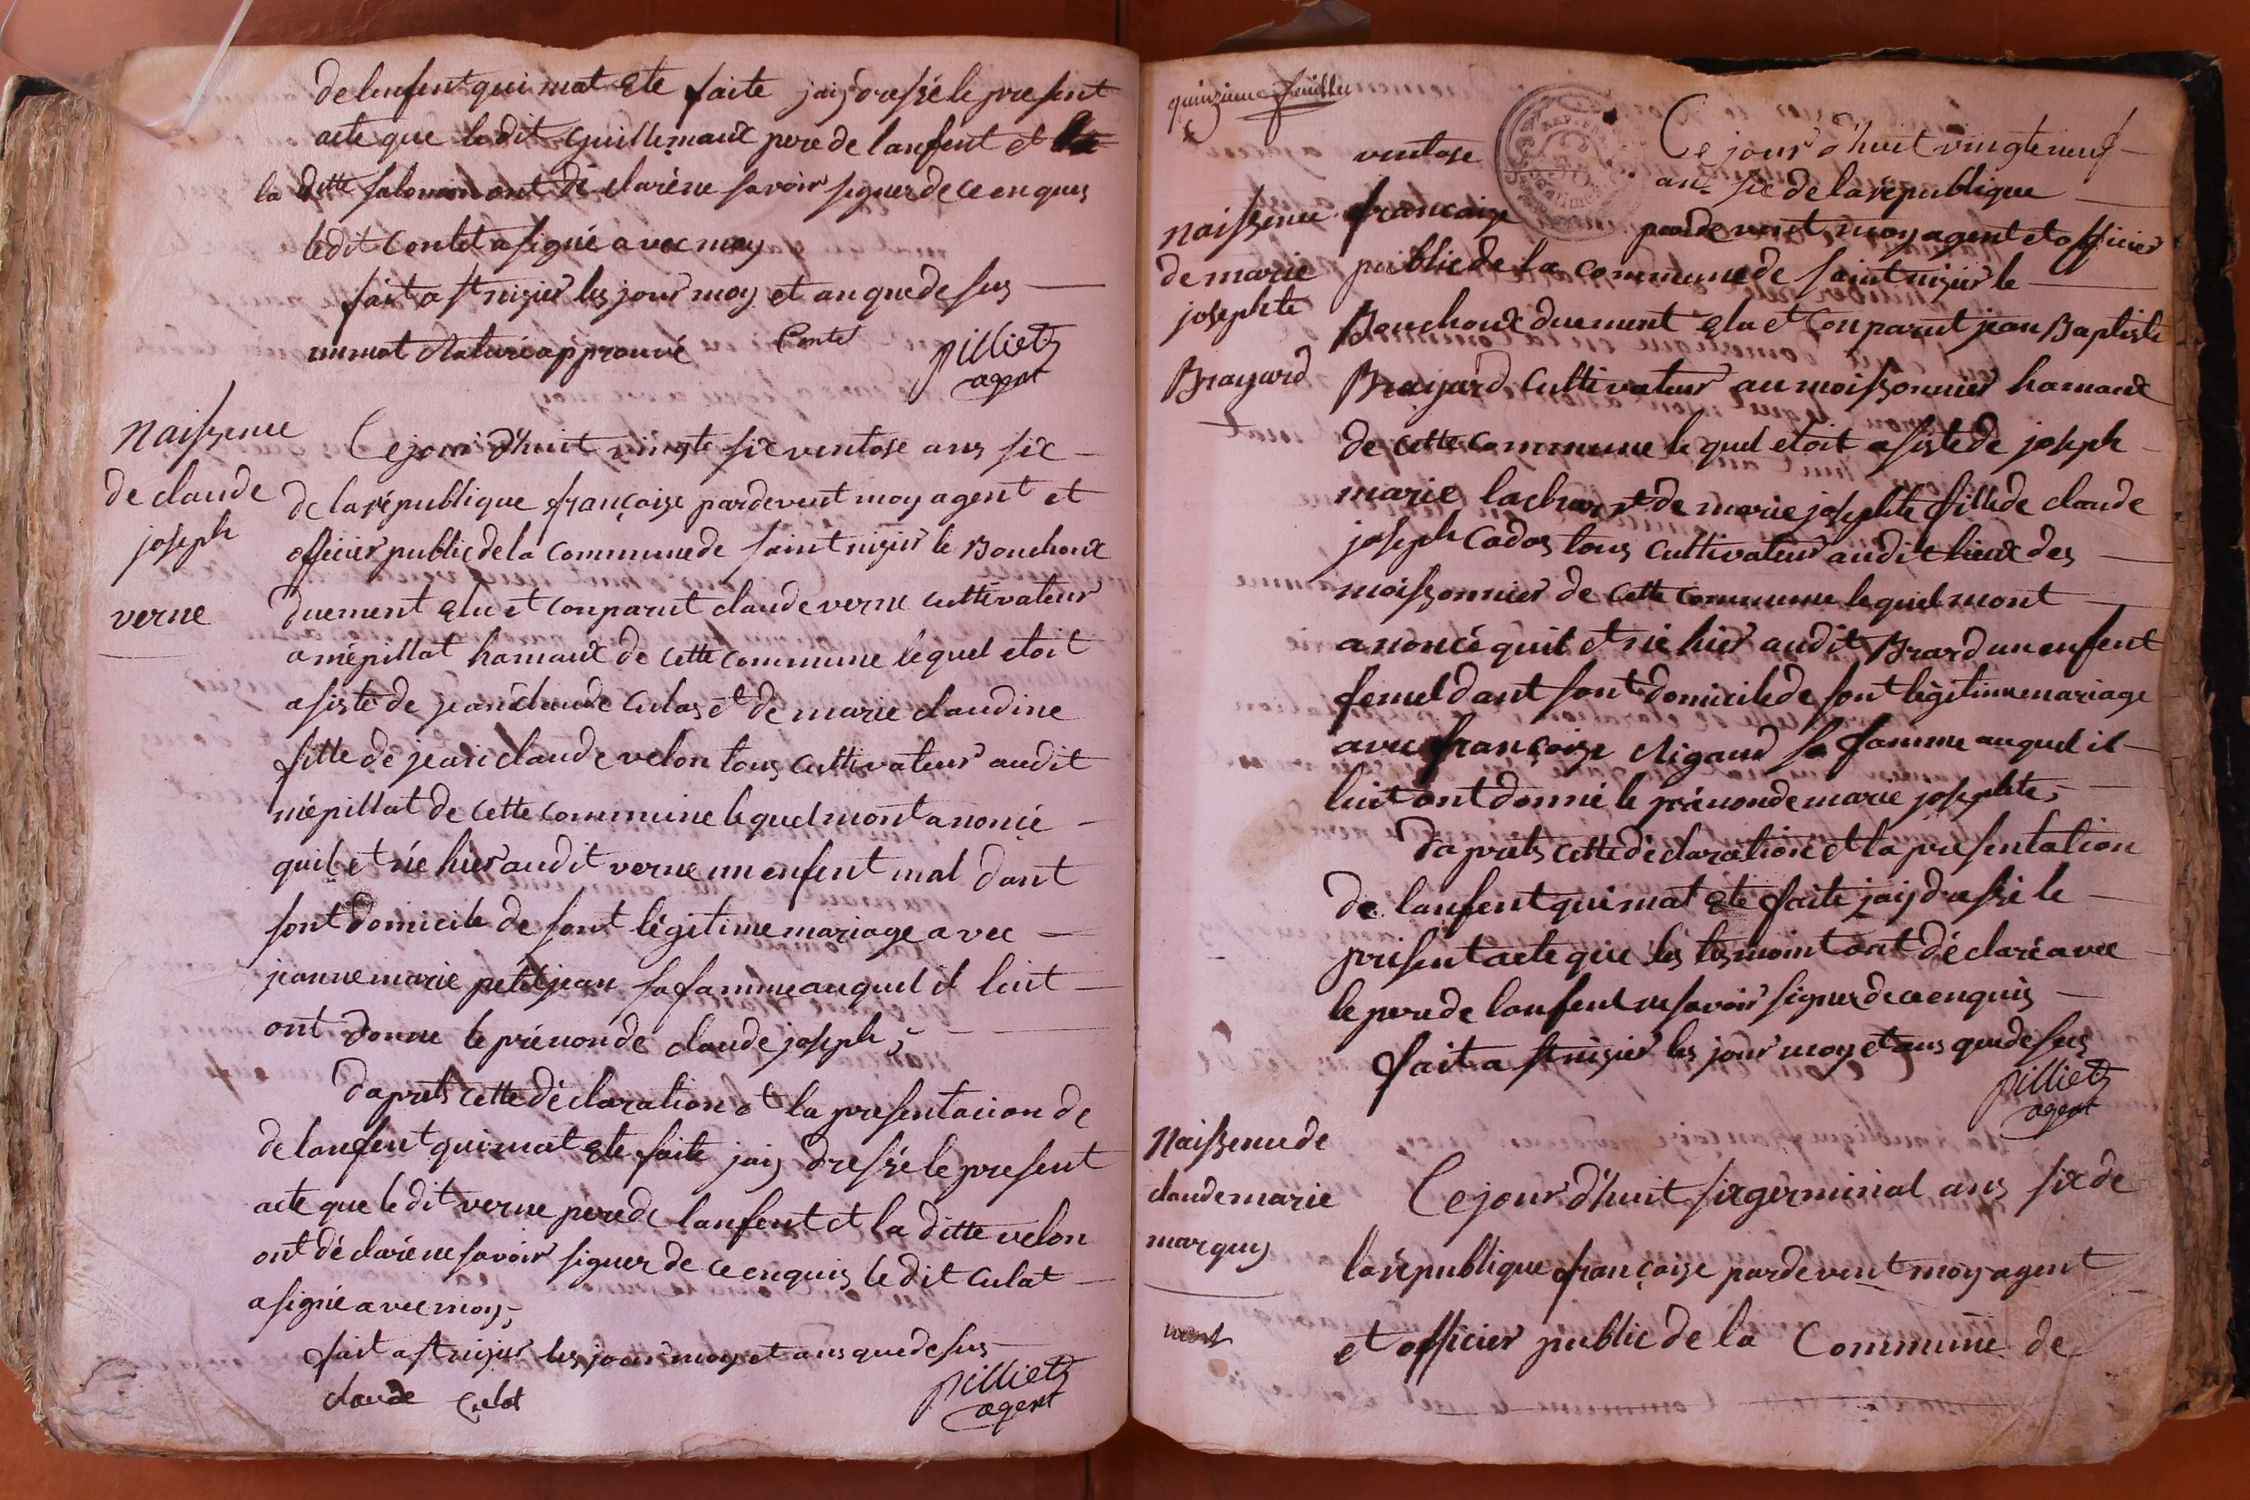 de lenfent qui mat ete faite jaij dressé le present
acte que le dit guillemaux pere de lanfent et
la ditte salomon ont dé claré ne savoir signer de ce enques
le dit Contet a signé avec moy
fait a st nizier les jour moy et an que de sus
un mot Raturé approuvé Contet pilliet
agent
Naissence
de claude
joseph
verne
Ce jour d'huit vingte six ventose ans six
de la république françoise pardevent moy agent et
officier public de la Commune de saint nizier le Bouchoux
duement elu et Conparut claude verne cultivateur
a mépillat hamaux de cette commune lequel etoit
asisté de jean claude Culas et de marie claudine
fille de jean claude velon tous cultivateur audit
mépillat de cette commune lequel mont anoncé
quil et née hier audit verne un enfent mal dant
sont domicile de sont légitime mariage avec
jeanne marie petitjean sa famme auquel il luit
ont donne le prénon de claude joseph ;
daprets cette déclaration et la presentacion de
de lanfent qui mat ete faite jaij dressé le present
acte que le dit verne pere de lanfent et la ditte velon
ont déclaré ne savoir signer de ce enquis le dit culat
a signé avec moy ;
fait a st nizier les jour moy et ans que de sus
claude Culat pilliet
agent
quinzieme feuillet
Ce jour d'huit vingte neuf
ventose an six de la république
françoise pardevent moy agent et officier
Naissence
de marie
josephte
Brayard
public de la commune de saint nizier le
Bouchoux duement elu et Conparut jean Baptiste
Brayard cultivateur au moissonnier hamaux
de cette commune le quel etoit asisté de joseph
marie lachar et de marie josephte fille de claude
joseph Cadas tous cultivateur audit lieux des
moissonnier de cette commune lequel mont
anoncé quil et née hier audit Brard un enfent
femel dant sont domicile de sont légitime mariage
avec françoise Rigaud sa famme auquel il
luit ont donné le prénon de marie josephte ;
daprets cette déclaration et la presentation
de lanfent qui mat ete faite jaij dressé le
présent acte que les tesmoint ont déclaré avec
le pere de lanfent ne savoir signer de ce enquis
fait a st nizier les jour moy et ans que de sus
pilliet
agent
Naissence de
claude marie
marquy
Ce jour d'huit six germinal ans six de
la république françoise pardevent moy agent
et officier public de la Commune de